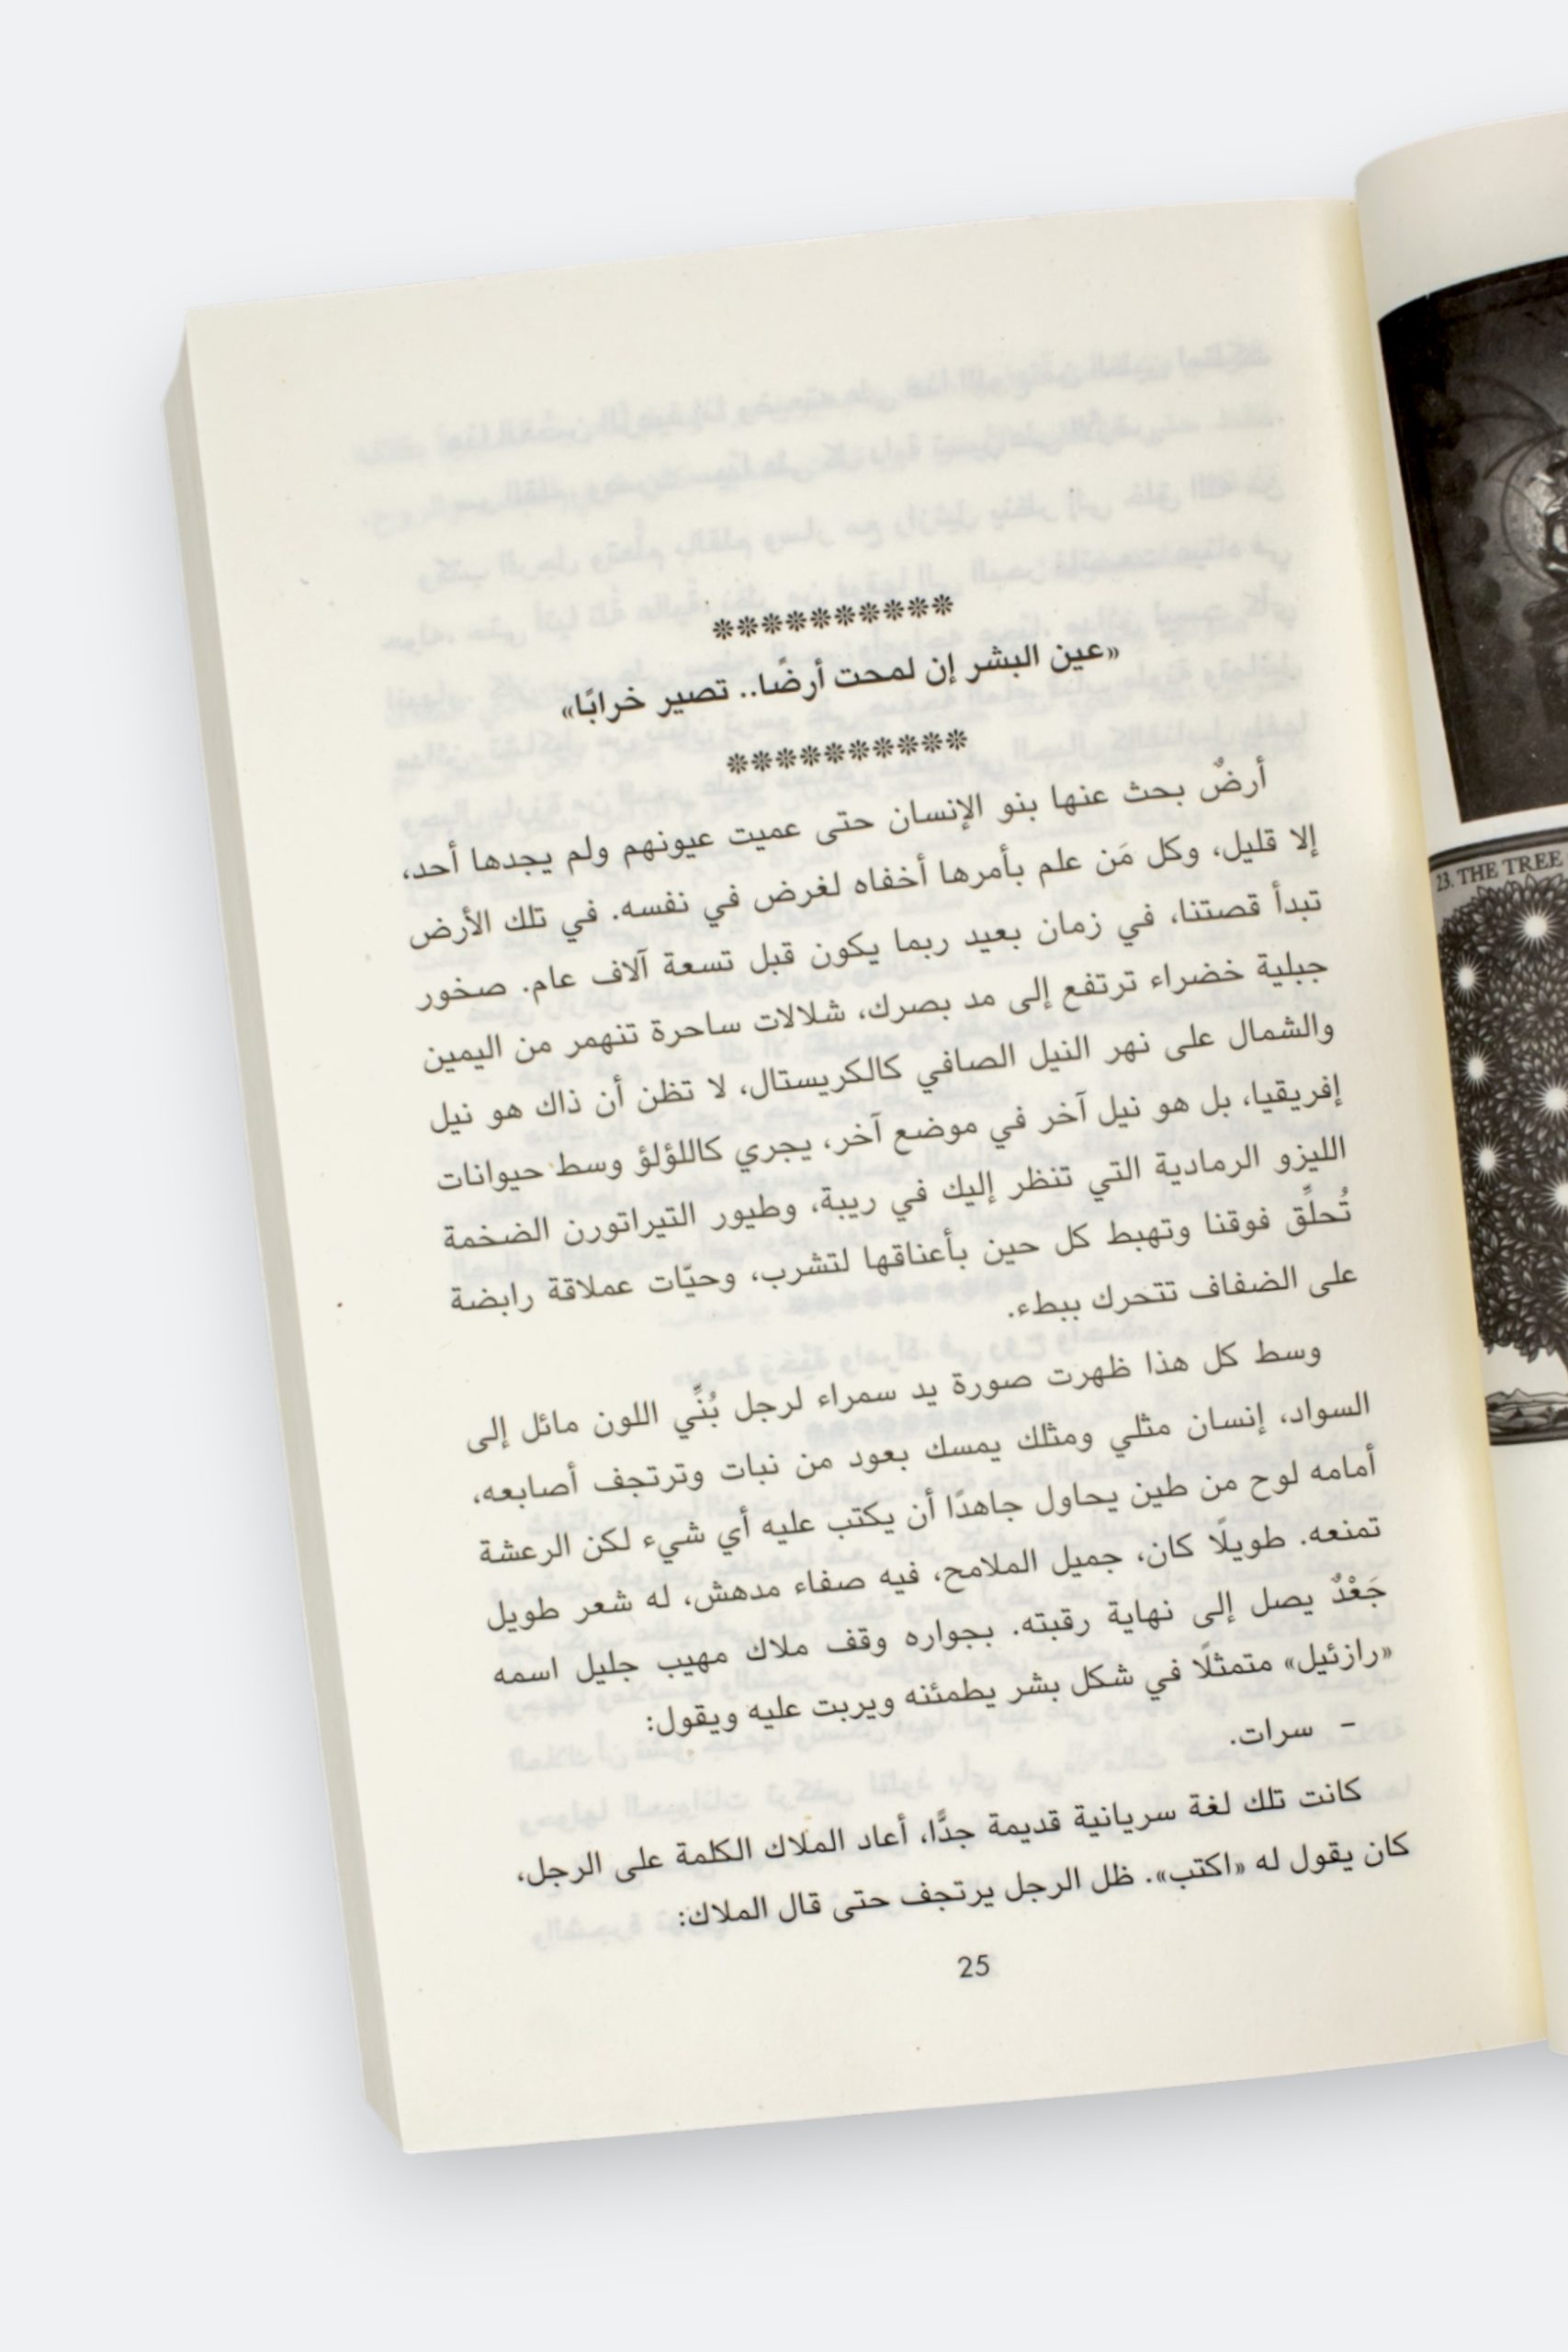 **********
«عين البشر إن لمحت أرضًا.. تصير خرابًا»
**********
أرضٌ بحث عنها بنو الإنسان حتى عميت عيونهم ولم يجدها أحد،
إلا قليل، وكل مَن علم بأمرها أخفاه لغرض في نفسه. في تلك الأرض
تبدأ قصتنا، في زمان بعيد ربما يكون قبل تسعة آلاف عام. صخور
جبلية خضراء ترتفع إلى مد بصرك، شلالات ساحرة تنهمر من اليمين
والشمال على نهر النيل الصافي كالكريستال، لا تظن أن ذاك هو نيل
إفريقيا، بل هو نيل آخر في موضع آخر، يجري كاللؤلؤ وسط حيوانات
الليزو الرمادية التي تنظر إليك في ريبة، وطيور التيراتورن الضخمة
تُحلِّق فوقنا وتهبط كل حين بأعناقها لتشرب، وحيّات عملاقة رابضة
على الضفاف تتحرك ببطء.
وسط كل هذا ظهرت صورة يد سمراء لرجل بُنِّي اللون مائل إلى
السواد، إنسان مثلي ومثلك يمسك بعود من نبات وترتجف أصابعه،
أمامه لوح من طين يحاول جاهدًا أن يكتب عليه أي شيء لكن الرعشة
تمنعه. طويلًا كان، جميل الملامح، فيه صفاء مدهش، له شعر طويل
جَعْدٌ يصل إلى نهاية رقبته. بجواره وقف ملاك مهيب جليل اسمه
«رازئيل» متمثلًا في شكل بشر يطمئنه ويربت عليه ويقول:
– سرات.
كانت تلك لغة سريانية قديمة جدًّا، أعاد الملاك الكلمة على الرجل،
كان يقول له «اكتب». ظل الرجل يرتجف حتى قال الملاك:
25
23. THE TREE